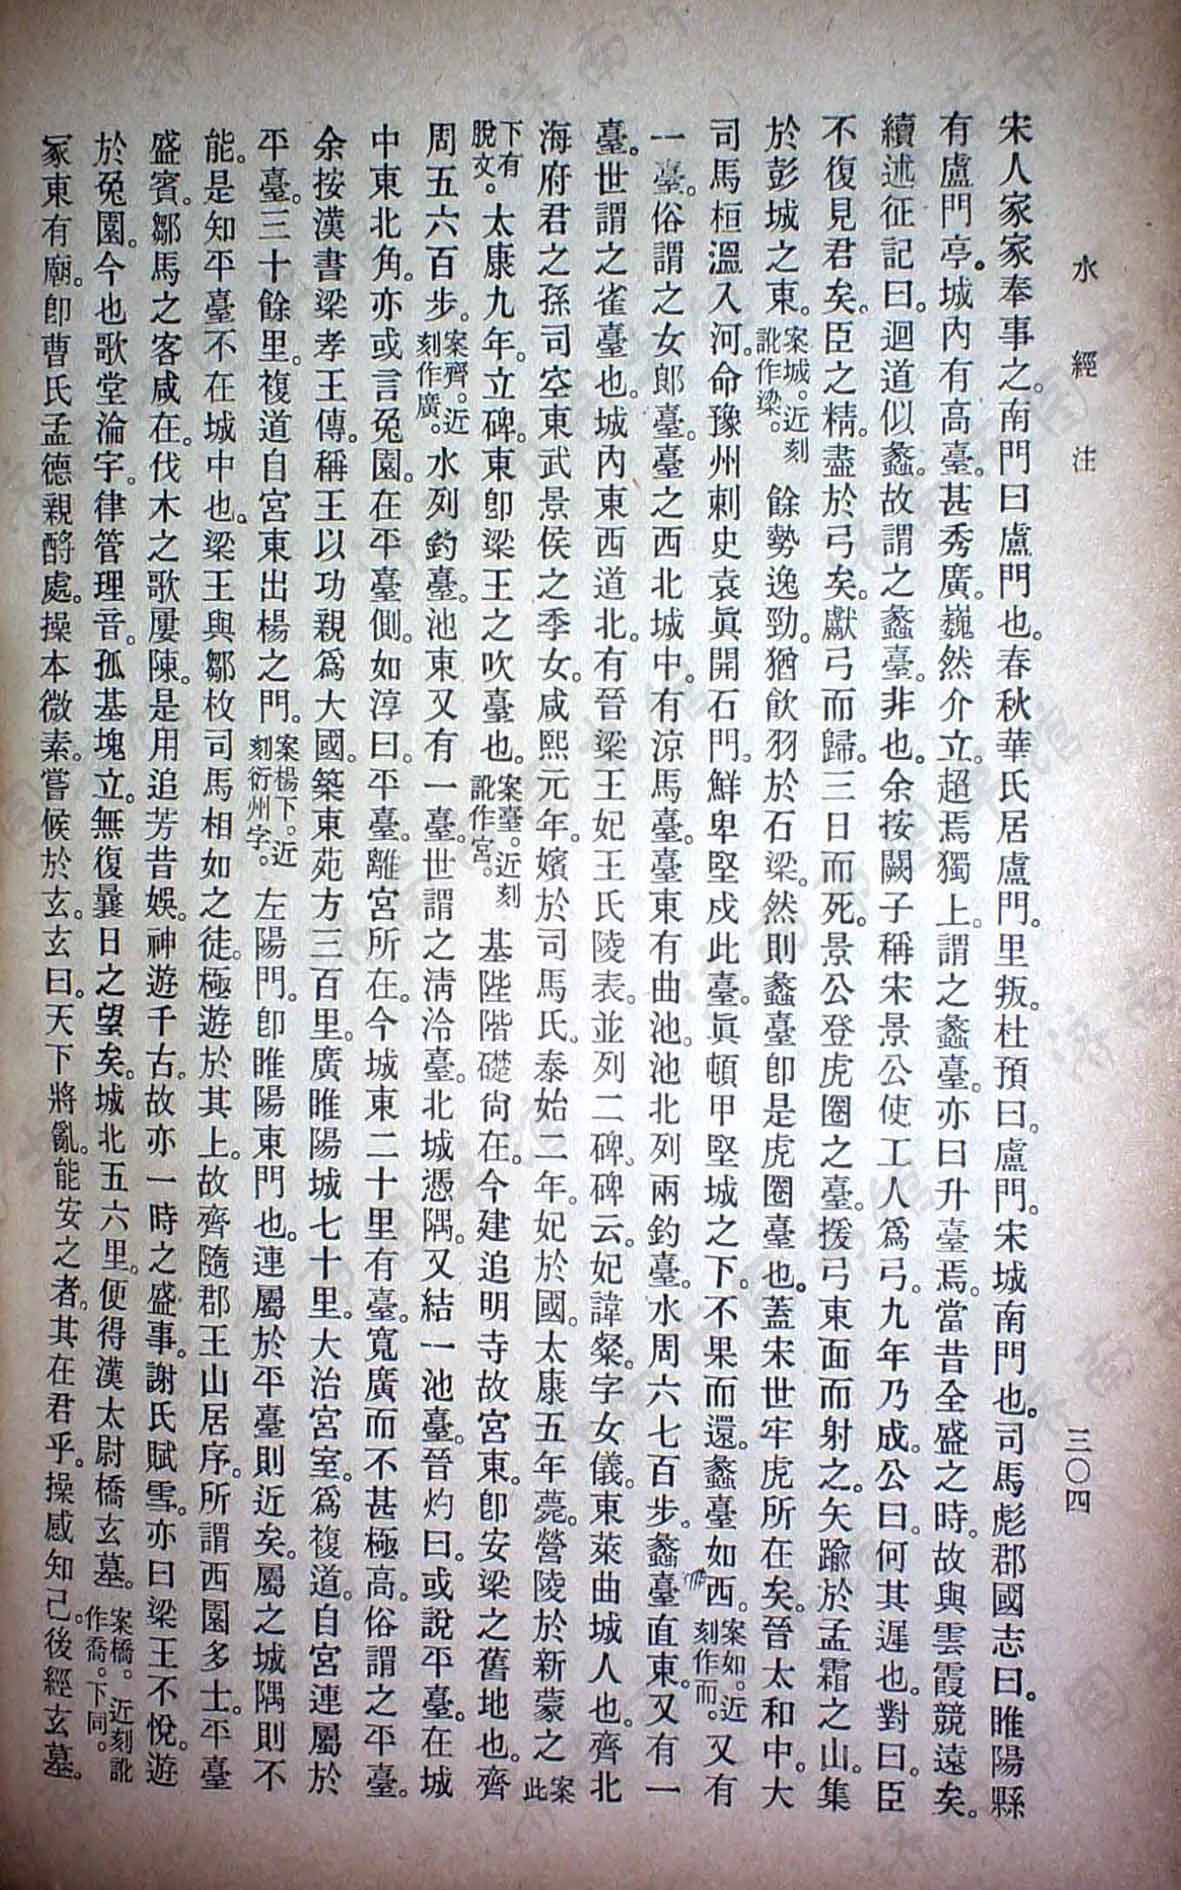 水經注
三〇四
宋人家家奉事之。南門曰盧門也。春秋華氏居盧門。里叛。杜預曰。盧門。宋城南門也。司馬彪郡國志曰。睢陽縣
有盧門亭。城內有高臺。甚秀廣。巍然介立。超焉獨上。謂之蠡臺。亦曰升臺焉。當昔全盛之時。故與雲霞競遠矣。
續述征記曰。迴道似蠡。故謂之蠡臺。非也。余按闕子稱宋景公使工人為弓。九年乃成。公曰。何其遲也。對曰。臣
不復見君矣。臣之精。盡於弓矣。獻弓而歸。三日而死。景公登虎圈之臺。援弓東面而射之。矢踰於孟霜之山。集
於彭城之東。案城。近刻訛作梁。餘勢逸勁。猶飲羽於石梁。然則蠡臺即是虎圈臺也。蓋宋世牢虎所在矣。晉太和中。大
司馬桓溫入河。命豫州刺史袁眞開石門。鮮卑堅戍此臺。眞頓甲堅城之下。不果而還。蠡臺如西。案如。近刻作而。又有
一臺。俗謂之女郎臺。臺之西北城中。有涼馬臺。臺東有曲池。池北列兩釣臺。水周六七百步。蠡臺直東。又有一
臺。世謂之雀臺也。城內東西道北。有晉梁王妃王氏陵表。並列二碑。碑云。妃諱粲。字女儀。東萊曲城人也。齊北
海府君之孫司空東武景侯之季女。咸熙元年。嬪於司馬氏。泰始二年。妃於國。太康五年薨。營陵於新蒙之案此
下有脫文。太康九年。立碑。東即梁王之吹臺也。案臺。近刻訛作宮。基陛階礎尙在。今建追明寺故宮東。即安梁之舊地也。齊
周五六百步。案齊。近刻作廣。水列釣臺。池東又有一臺。世謂之淸泠臺。北城憑隅。又結一池臺。晉灼曰。或說平臺。在城
中東北角。亦或言兔園。在平臺側。如淳曰。平臺。離宮所在。今城東二十里有臺。寬廣而不甚極高。俗謂之平臺。
余按漢書梁孝王傳。稱王以功親爲大國。築東苑方三百里。廣睢陽城七十里。大治宮室。爲複道。自宮連屬於
平臺。三十餘里。複道自宮東出楊之門。案楊下。近刻衍州字。左陽門。即睢陽東門也。連屬於平臺則近矣。屬之城隅則不
能。是知平臺不在城中也。梁王與鄒枚司馬相如之徒。極遊於其上。故齊隨郡王山居序。所謂西園多士。平臺
盛賓。鄒馬之客咸在。伐木之歌屢陳。是用追芳昔娛。神遊千古。故亦一時之盛事。謝氏賦雪。亦曰梁王不悅。遊
於兔園。今也歌堂淪宇。律管埋音。孤基塊立。無復曩日之望矣。城北五六里。便得漢太尉橋玄墓。案橋。近刻訛作喬。下同。
冢東有廟。即曹氏孟德親酹處。操本微素。嘗候於玄。玄曰。天下將亂。能安之者。其在君乎。操感知己。後經玄墓。